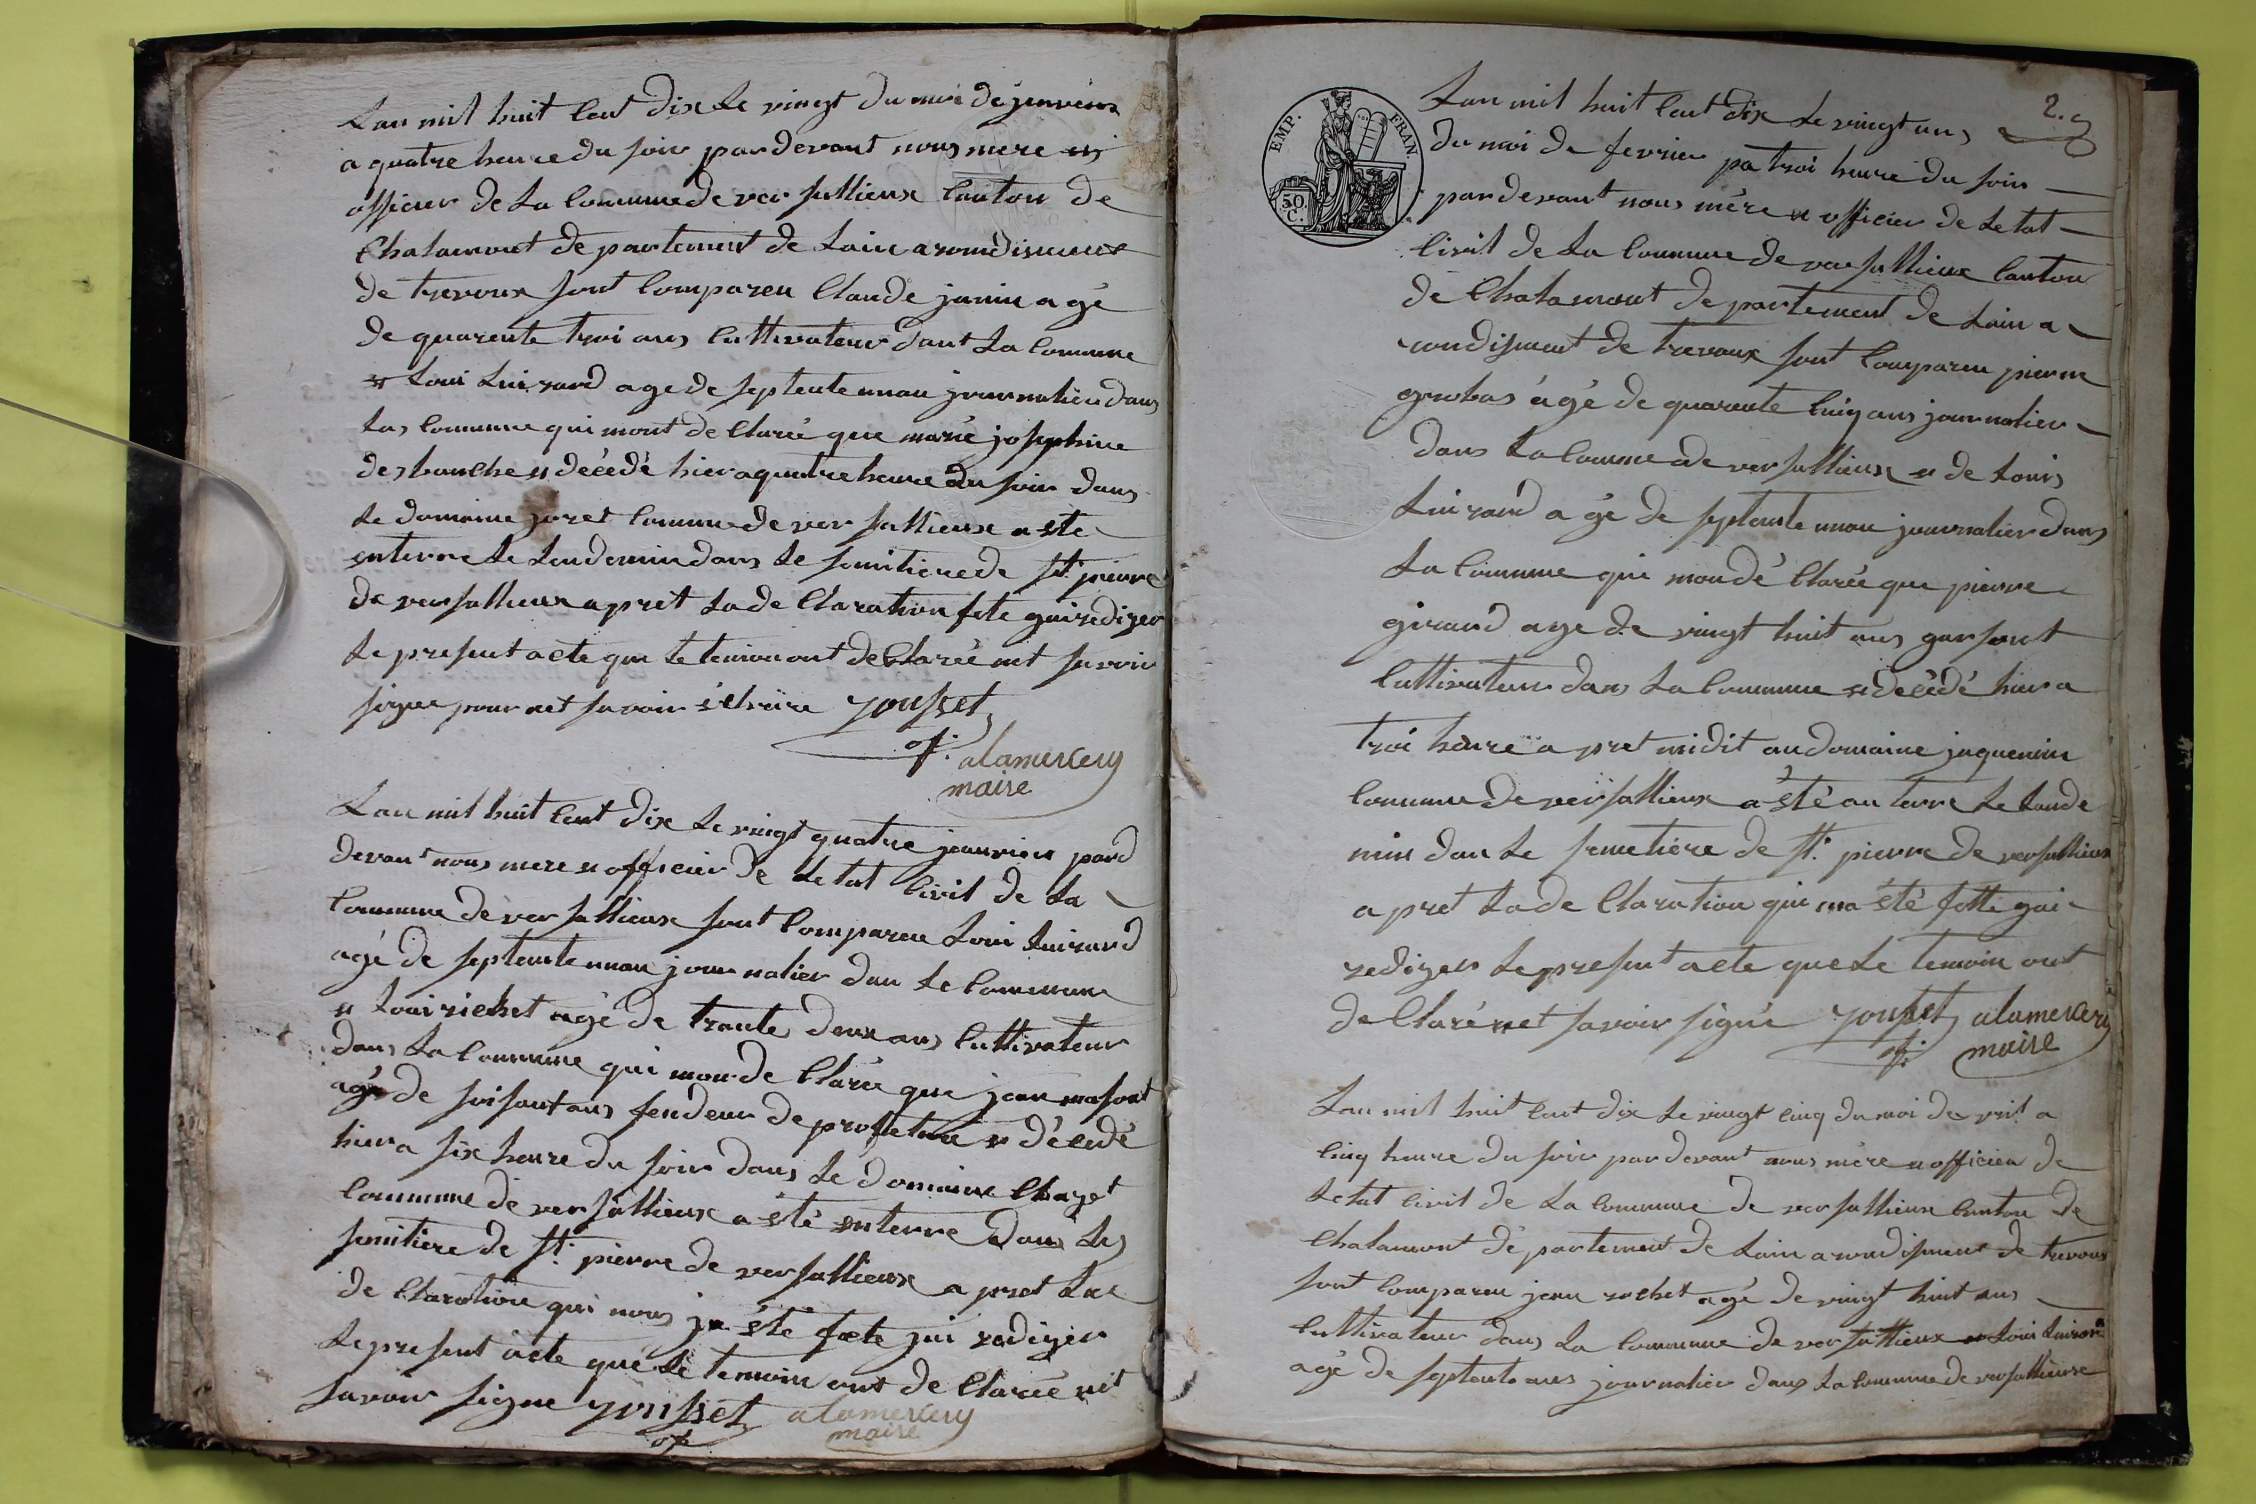 Lan mil huit Cent dix Le vingt du moi de jenvier
a quatre heure du soir par devant nous mere et
officier de La Commune de versallieux Canton de
Chalamont de partement de Lain arondisment
de trevoux sont Comparen Claude janin agé
de quarente troi ans Cultivateur dant La Comune
et Loui Luizard age de septente un an journalier dans
Las Comune qui mont de Claré que marie josephine
desbouche et décédé hier a quatre heure du soir dans
Le domaine juret Commune de versallieux a ste
enterre Le Lendemin dans Le semitiere de St. pierre
de versallieux apret La de Claration fete gai redizer
Le present acte que Le temoin ont de Claré net savoir
signe pour net savoir s'ehrire youssel
of. alamercery
maire
Lan mil huit Cent dix Le vingt quatre jeanvier pard
devant nous mere et officier de Le tat Civil de La
Commune de versallieux sont Comparen Loui Luizard
agé de septente un an journalier dan Le Commune
et Loui richet agé de trante deux ans Cultivateur
dans La Commune qui mon de Claré que jean masont
agé de soisant ans fendeur de profetion et décédé
hier a six heure du soir dans Le domaine Chazet
Commune de versallieux a sté enterre dans Les
semitiere de St. pierre de versallieux a pret Las
de Claration qui nous ja sté faete jai redizer
Le present acte que Le temoin ont de Claréé nit
savoir signe youssel alamercery
of maire
2.
EMP. FRAN.
50. C.
Lan mil huit Cent dix Le vingt uns
du moi de fevrier pa troi heure du soir
par devant nous mère et officier de Le tat
Civil de La Commune de versallieux Canton
de Chalamont de partement de Lain a
rondisment de trevoux sont Comparen pierre
grobas agé de quarente Cinq ans journalier
dans La Comune de versallieux et de Louis
Luizard a gé de septente un an journalier dans
La Commune qui mon dé Claré que pierre
giraud age de vingt huit ans garsont
Cultivateur dans La Commune et décédé hier a
troi heure a pret midit au domaine jaquemin
Commune de versallieux a sté an terre Le Lande
min dan Le semetiere de St. pierre de versallieux
a pret La de Claration qui ma sté fette gai
redizer Le present acte que Le temoin ont
de Claré net savoir signé youssel alamercery
of. maire
Lan mil huit Cent dix Le vingt Cinq du moi da vril a
Cinq heure du soir par devant nous mère et officier de
Le tat Civil de La Commune de versallieux Canton de
Chalamont de partement de Lain arondisment de trevoux
sont Comparen jean rochet agé de vingt huit ans
Cultivateur dans La Commune de versallieux et Loui Luizard
agé de septente ans journalier dans La Commune de versallieux